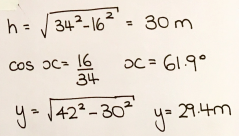 h = √34²-16² = 30 m
cos x = 16/34 x = 61.9°
y = √42²-30² y = 29.4m